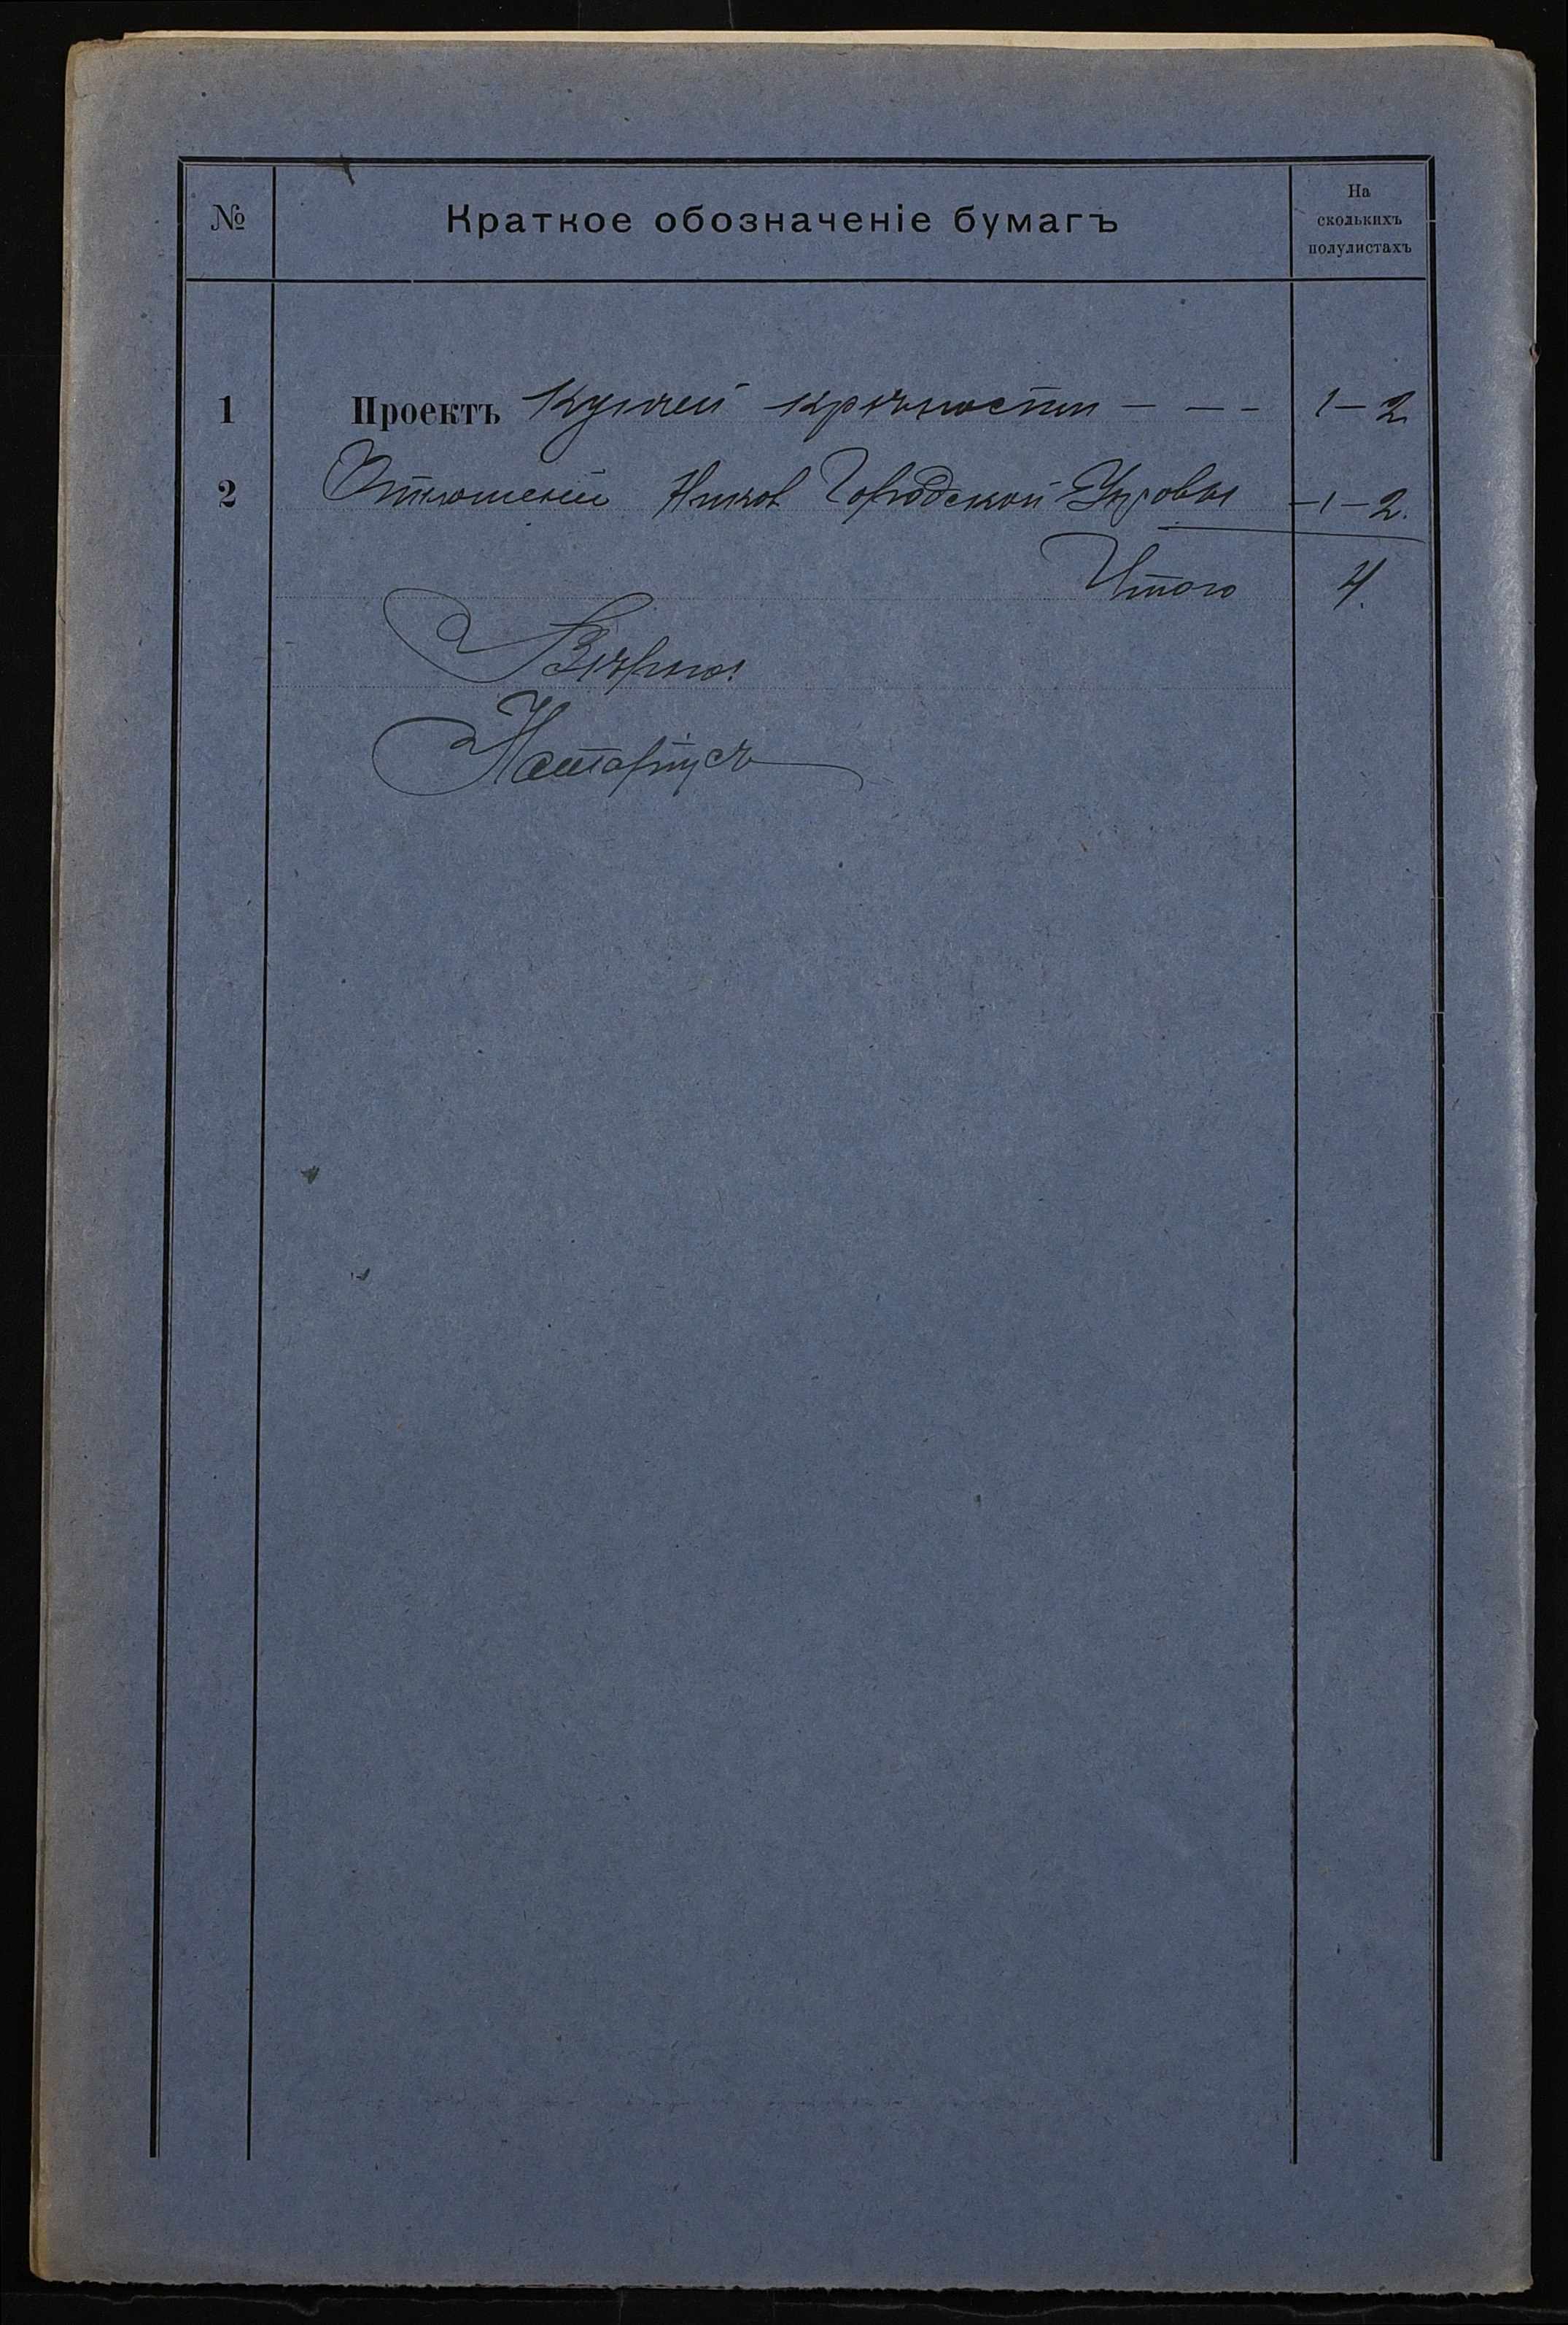 № Краткое обозначеніе бумагъ На
сколькихъ
полулистахъ
1 Проектъ Купчей крѣпости - - - 1-2
2 Отношеніе Город­ской Управы -1-2.
Итого 4.
Вѣрно:
Нотаріусъ